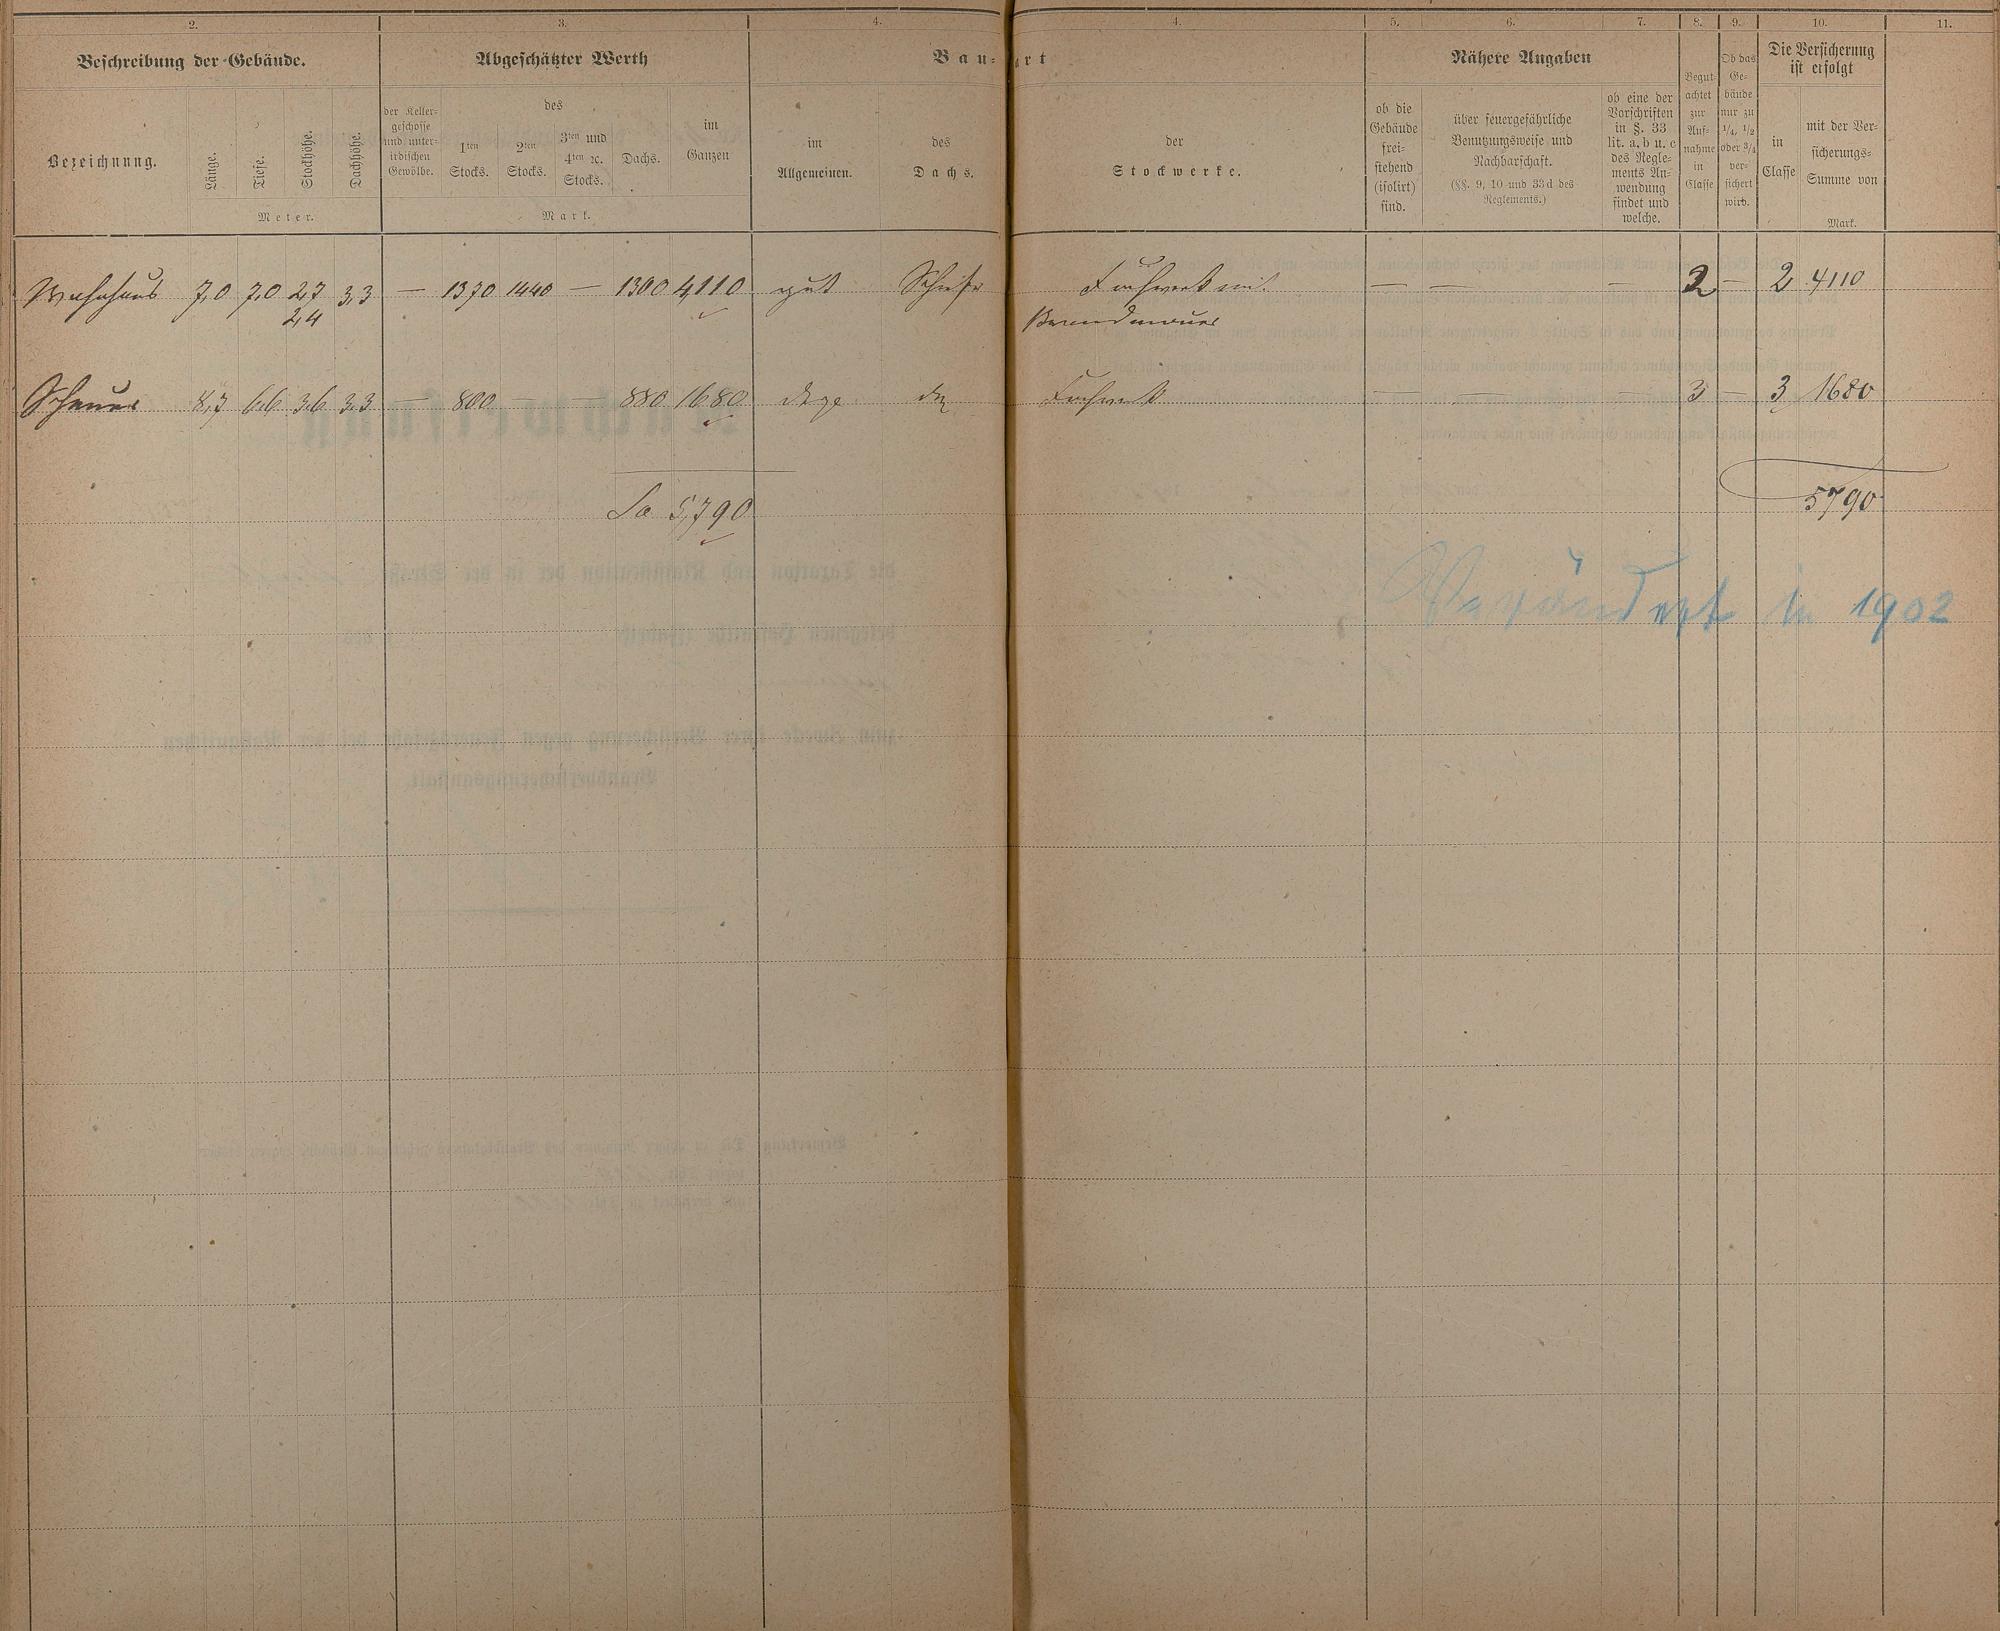 2. 3. 4. 4. 5. 6. 7. 8. 9. 10. 11.
Beschreibung der Gebäude. Abgeschätzter Werth Bau- art Nähere Angaben
Die Versicherung
ist erfolgt
Bezeichnung. Länge. Tiefe. Stockhöhe. Dachhöhe.
Meter.
der Keller-
geschosse
und unter-
irdischen
Gewölbe.
des
1ten
Stocks.
2ten
Stocks.
3ten und
4ten ꝛc.
Stocks.
Dachs.
im
Ganzen
Mark.
im
Allgemeinen.
des
Dachs.
der
Stockwerke.
ob die
Gebäude
frei-
stehend
(isolirt)
sind.
über feuergefährliche
Benutzungsweise und
Nachbarschaft.
(§§. 9, 10 und 33d des
Reglements.)
ob eine der
Vorschriften
in §. 33
lit. a, b u. c
des Regle-
ments An-
wendung
findet und
welche.
Begut-
achtet
zur
Auf-
nahme
in
Classe
Ob das
Ge-
bäude
nur zu
1/4, 1/2
oder 3/4
ver-
sichert
wird.
in
Classe
mit der Ver-
sicherungs-
Summe von
Mark.
Wohnhaus 7,0 7,0 2,7 3,3 — 1370 1440 — 1300 4,110 gut Schiefr Fachwerk mit — — — 2 — 2 4110
2,4 Brandmauer
Scheuer 8,7 6,6 3,6 3,3 — 800 — — 880 1680 Fachwerk — — — 3 — 3 1680
Sa 5,790 5790
Verändert in 1902